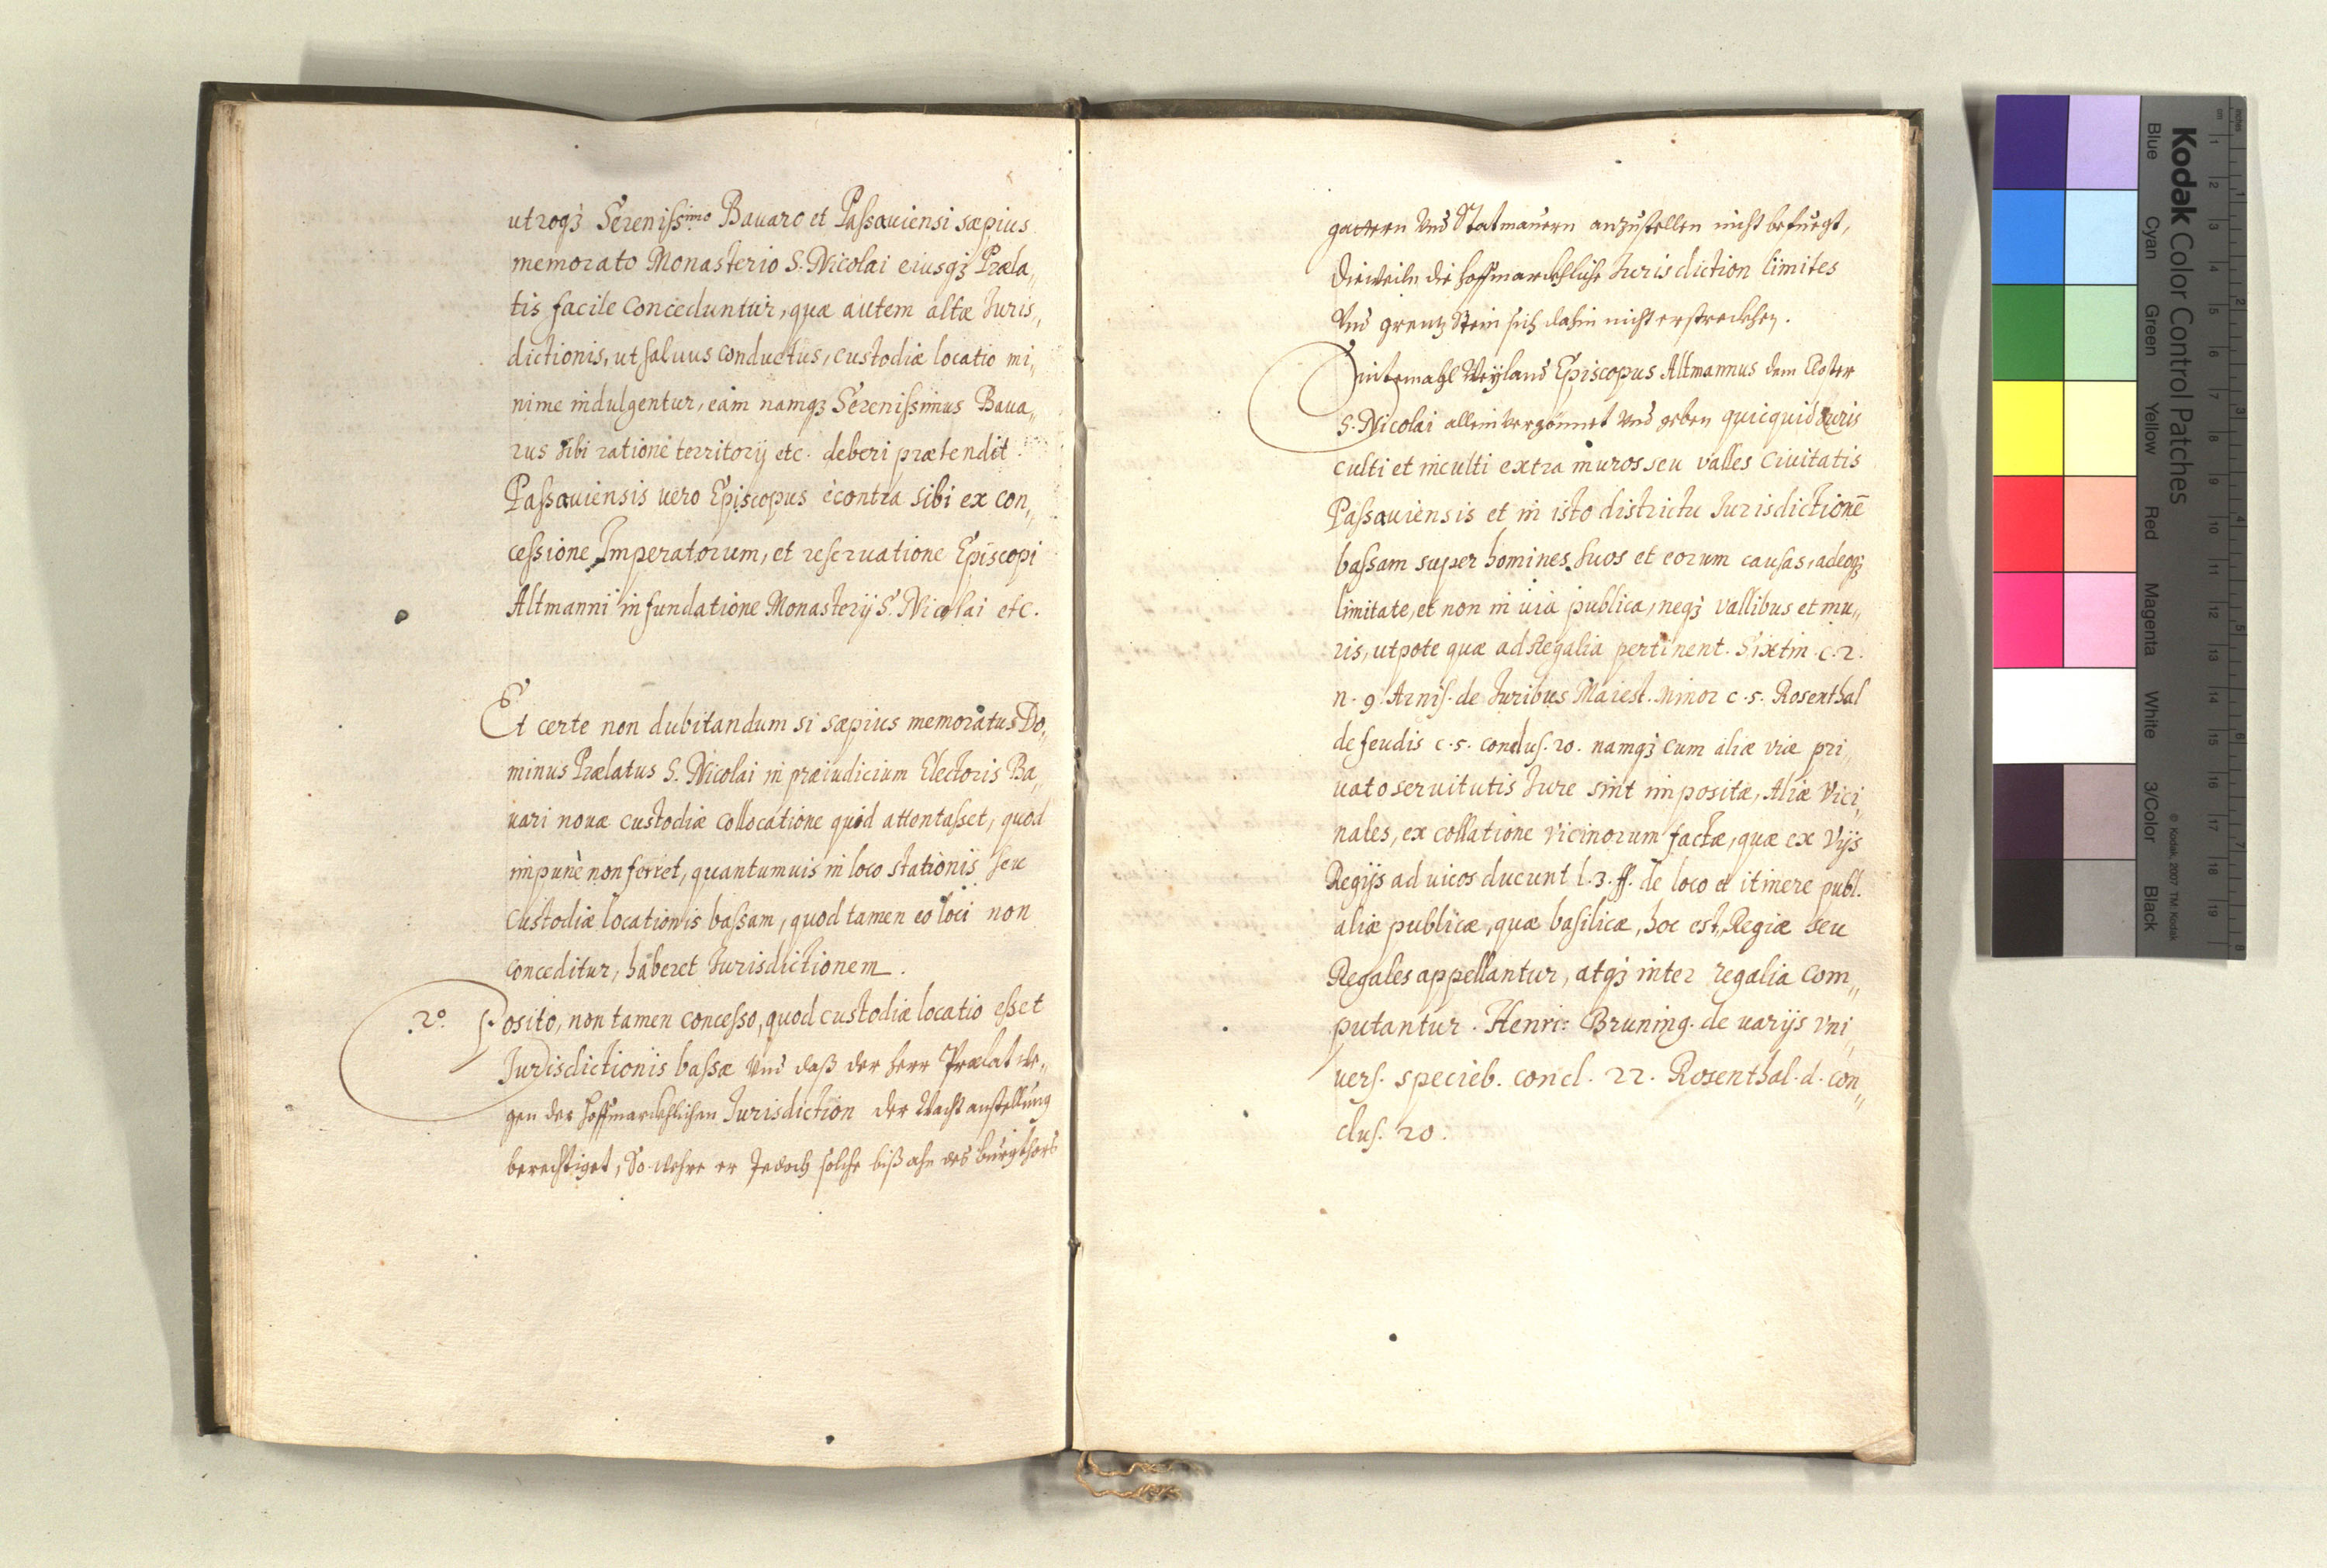 utroq₃ Sereniss.imo Bauaro et Passauiensi sæpius
memorato Monasterio S. Nicolai eiusq₃ Præla„
tis facile conceduntur, quæ autem altæ Juris„
dictionis, ut saluus conductus, custodiæ locatio mi„
nime indulgentur, eam namq₃ Serenissimus Baua„
rus sibi ratione territorij etc. deberi prætendit.
Passauiensis uero Episcopus ècontra sibi ex con„
cessione Imperatorum, et reseruatione Episcopi
Altmanni in fundatione Monasterij S. Nicolai etc.
Et certe non dubitandum si sæpius memoratus Do„
minus Prælatus S. Nicolai in præiudicium Electoris Ba„
uari nouæ custodiæ collocatione quid attentasset, quod
impunè non ferret, quantumuis in loco stationis seu
Custodiæ locationis bassam, quod tamen eo loci non
conceditur, haberet Jurisdictionem.
.2º. Posito, non tamen concesso, quod custodiæ locatio esset
Jurisdictionis bassæ Vnd daß der Herr Prælat we„
gen der hoffmarchlichen Jurisdiction der Wacht anstellung
berechtiget, So wehre er Jedoch solche biß ahn des burgthors
gattern Vnd Statmauern anzustellen nicht befuegt,
dieweiln die hoffmarchliche Jurisdiction limites
Vnd grentz Stein sich dahin nicht erstreckhen.
Sintemahl Weyland Episcopus Altmannus dem Closter
S. Nicolai allein vergönnet Vnd geben quicquid Juris
culti et inculti extra muros seu valles Ciuitatis
Passauiensis et in isto districtu Jurisdictionē
bassam super homines suos et eorum causas, adeoq₃
limitate, et non in uia publica, neq₃ vallibus et mu„
ris, utpote quæ ad Regalia pertinent. Sixtin. c. 2.
n. 9. Arnis. de Juribus Maiest. minor c. 5. Rosenthal
de feudis c. 5. conclus. 20. namq₃ cum aliæ viæ pri„
uato seruitutis Jure sint impositæ, Aliæ Vici„
nales, ex collatione vicinorum factæ, quæ ex Vijs
Regijs ad uicos ducunt l. 3. ff. de loco et itinere publ.
aliæ publicæ, quæ basilicæ, hoc est, Regiæ seu
Regales appellantur, atq₃ inter regalia com„
putantur. Henri: Bruning. de uarijs Vni„
uers. specieb. concl. 22. Rosenthal. d. con„
clus. 20.
Kodak Color Control Patches
© Kodak, 2007 TM: Kodak
Blue Cyan Green Yellow Red Magenta White 3/Color Black